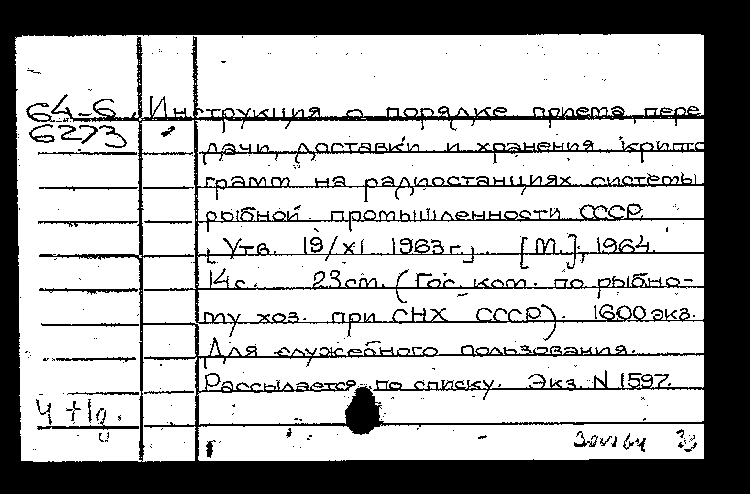 64-6 Инструкция о порядке приема, пере
6273 дачи, доставки и хранения крипто
грамм на радиостанциях системы
рыбной промышленности СССР.
[Утв. 19/XI 1963 г.] [М.], 1964.
14 с. 23 см. (Гос. ком. по рыбно-
му хоз. при СНХ СССР). 1600 экз.
Для служебного пользования.
Рассылается по списку. Экз. N 1597.